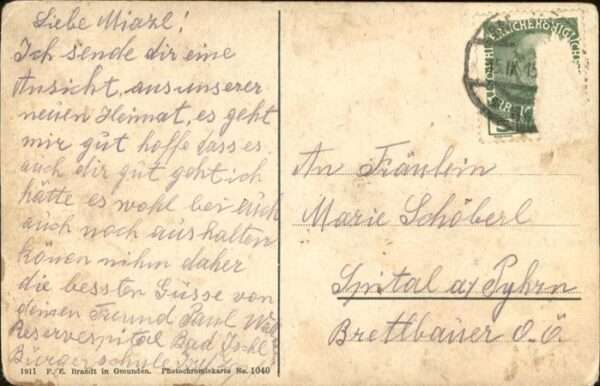 Liebe Miazl!
Ich sende dir eine
Ansicht, aus unserer
neuen Heimat, es geht
mir gut hoffe dass es
auch dir gut geht ich
hätte es wohl bei Euch
auch noch aushalten
könen nihm daher
die bessten Güsse von
deinen Freund Paul
Reservespital Bad Ischl
Bürgerschule
1911 F. E. Brandt in Gmunden. Photochromiekarte No. 1040
5 IX 15
An Fräulein
Marie Schöberl
Spital a/ Pyhrn
Brettbauer O. Ö.